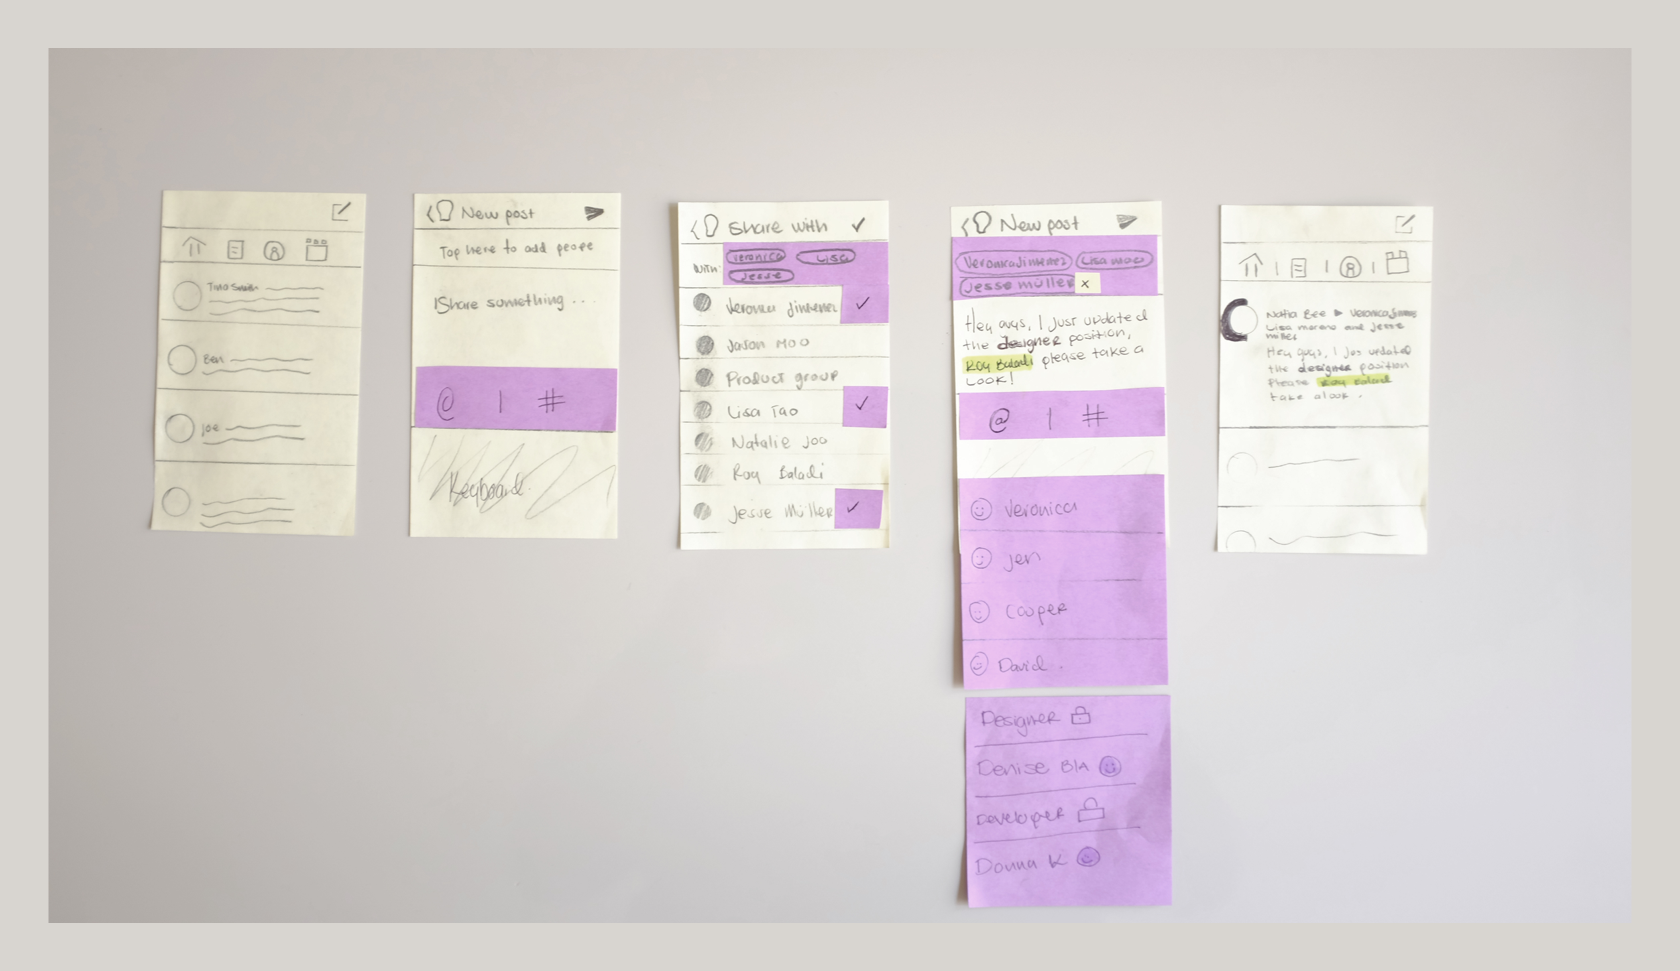 Tina Smith
Ben
Joe
New post
Tap here to add people
Share something ...
@ | #
Keyboard
Share with ✓
With: Veronica Lisa
Jesse
Veronica Jimenez ✓
Jason Moo
Product group
Lisa Tao ✓
Natalie Joo
Roy Baladi
Jesse Müller ✓
New post
Veronica Jimenez Lisa moo
Jesse müller x
Hey guys, I just updated
the designer position,
Roy Baladi please take a
Look!
@ | #
Veronica
Jen
Cooper
David.
Designer
Denise BIA
Developer
Donna K
Natia Bee ▶ Veronica Jimnes
Lisa moreno and Jesse
miller
Hey guys, I jos updated
the designer position
Please Roy Baladi
take a look.